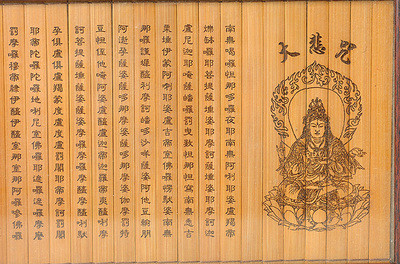 大悲咒
南無喝囉怛那哆囉夜耶南無阿利耶婆盧羯帝
爍缽囉耶菩提薩埵婆耶摩訶薩埵婆耶摩訶迦
盧尼迦耶唵薩皤囉罰曳數怛那怛寫南無悉吉
栗埵伊蒙阿利耶婆盧吉帝室佛囉楞馱婆南無
那囉謹墀醯利摩訶皤哆沙咩薩婆阿他豆輸朋
阿逝孕薩婆薩哆那摩婆薩哆那摩婆伽摩罰特
豆怛侄他唵阿婆盧醯盧迦帝迦羅帝夷醯利摩
訶菩提薩埵薩婆薩婆摩囉摩囉摩醯摩醯利馱
孕俱盧俱盧羯蒙度盧度盧罰闍耶帝摩訶罰闍
耶帝陀囉陀囉地利尼室佛囉耶遮囉遮囉麼麼
罰摩囉穆帝隸伊醯伊醯室那室那阿囉嘇佛囉